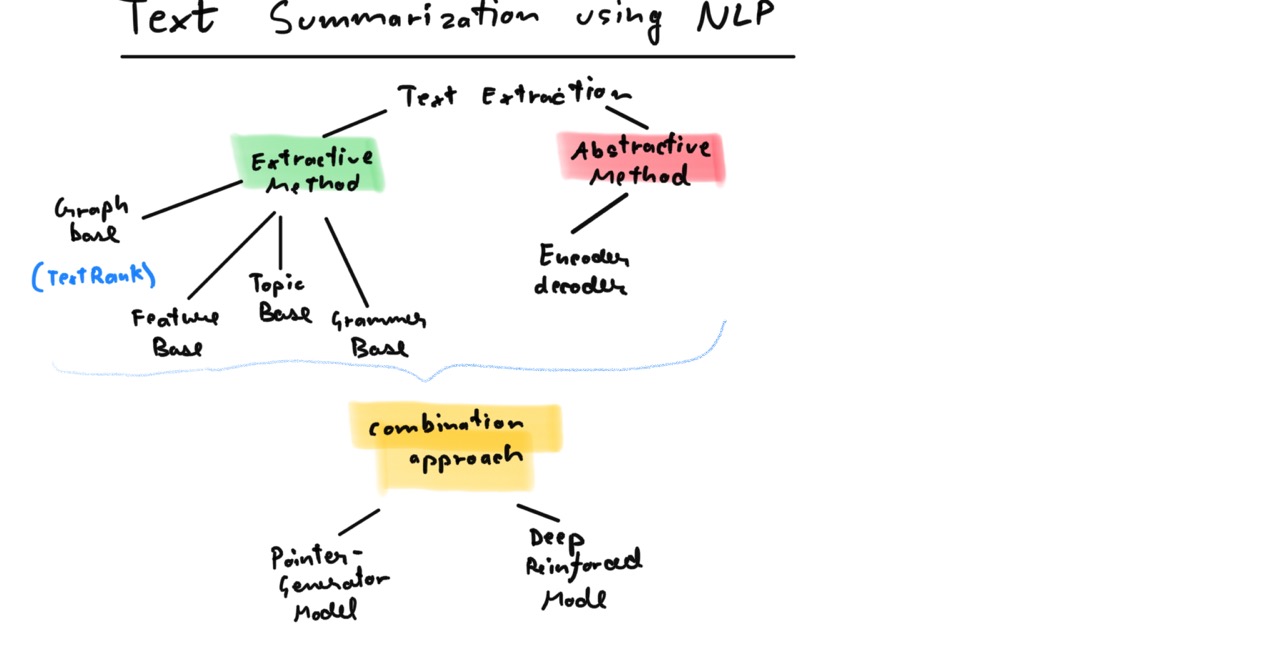 Text Summarization using NLP
Text Extraction
Extractive
Method
Abstractive
Method
Graph
base
(TextRank)
Feature
Base
Topic
Base
Grammer
Base
Encoder
decoder
Combination
approach
Pointer-
Generator
Model
Deep
Reinforced
Model